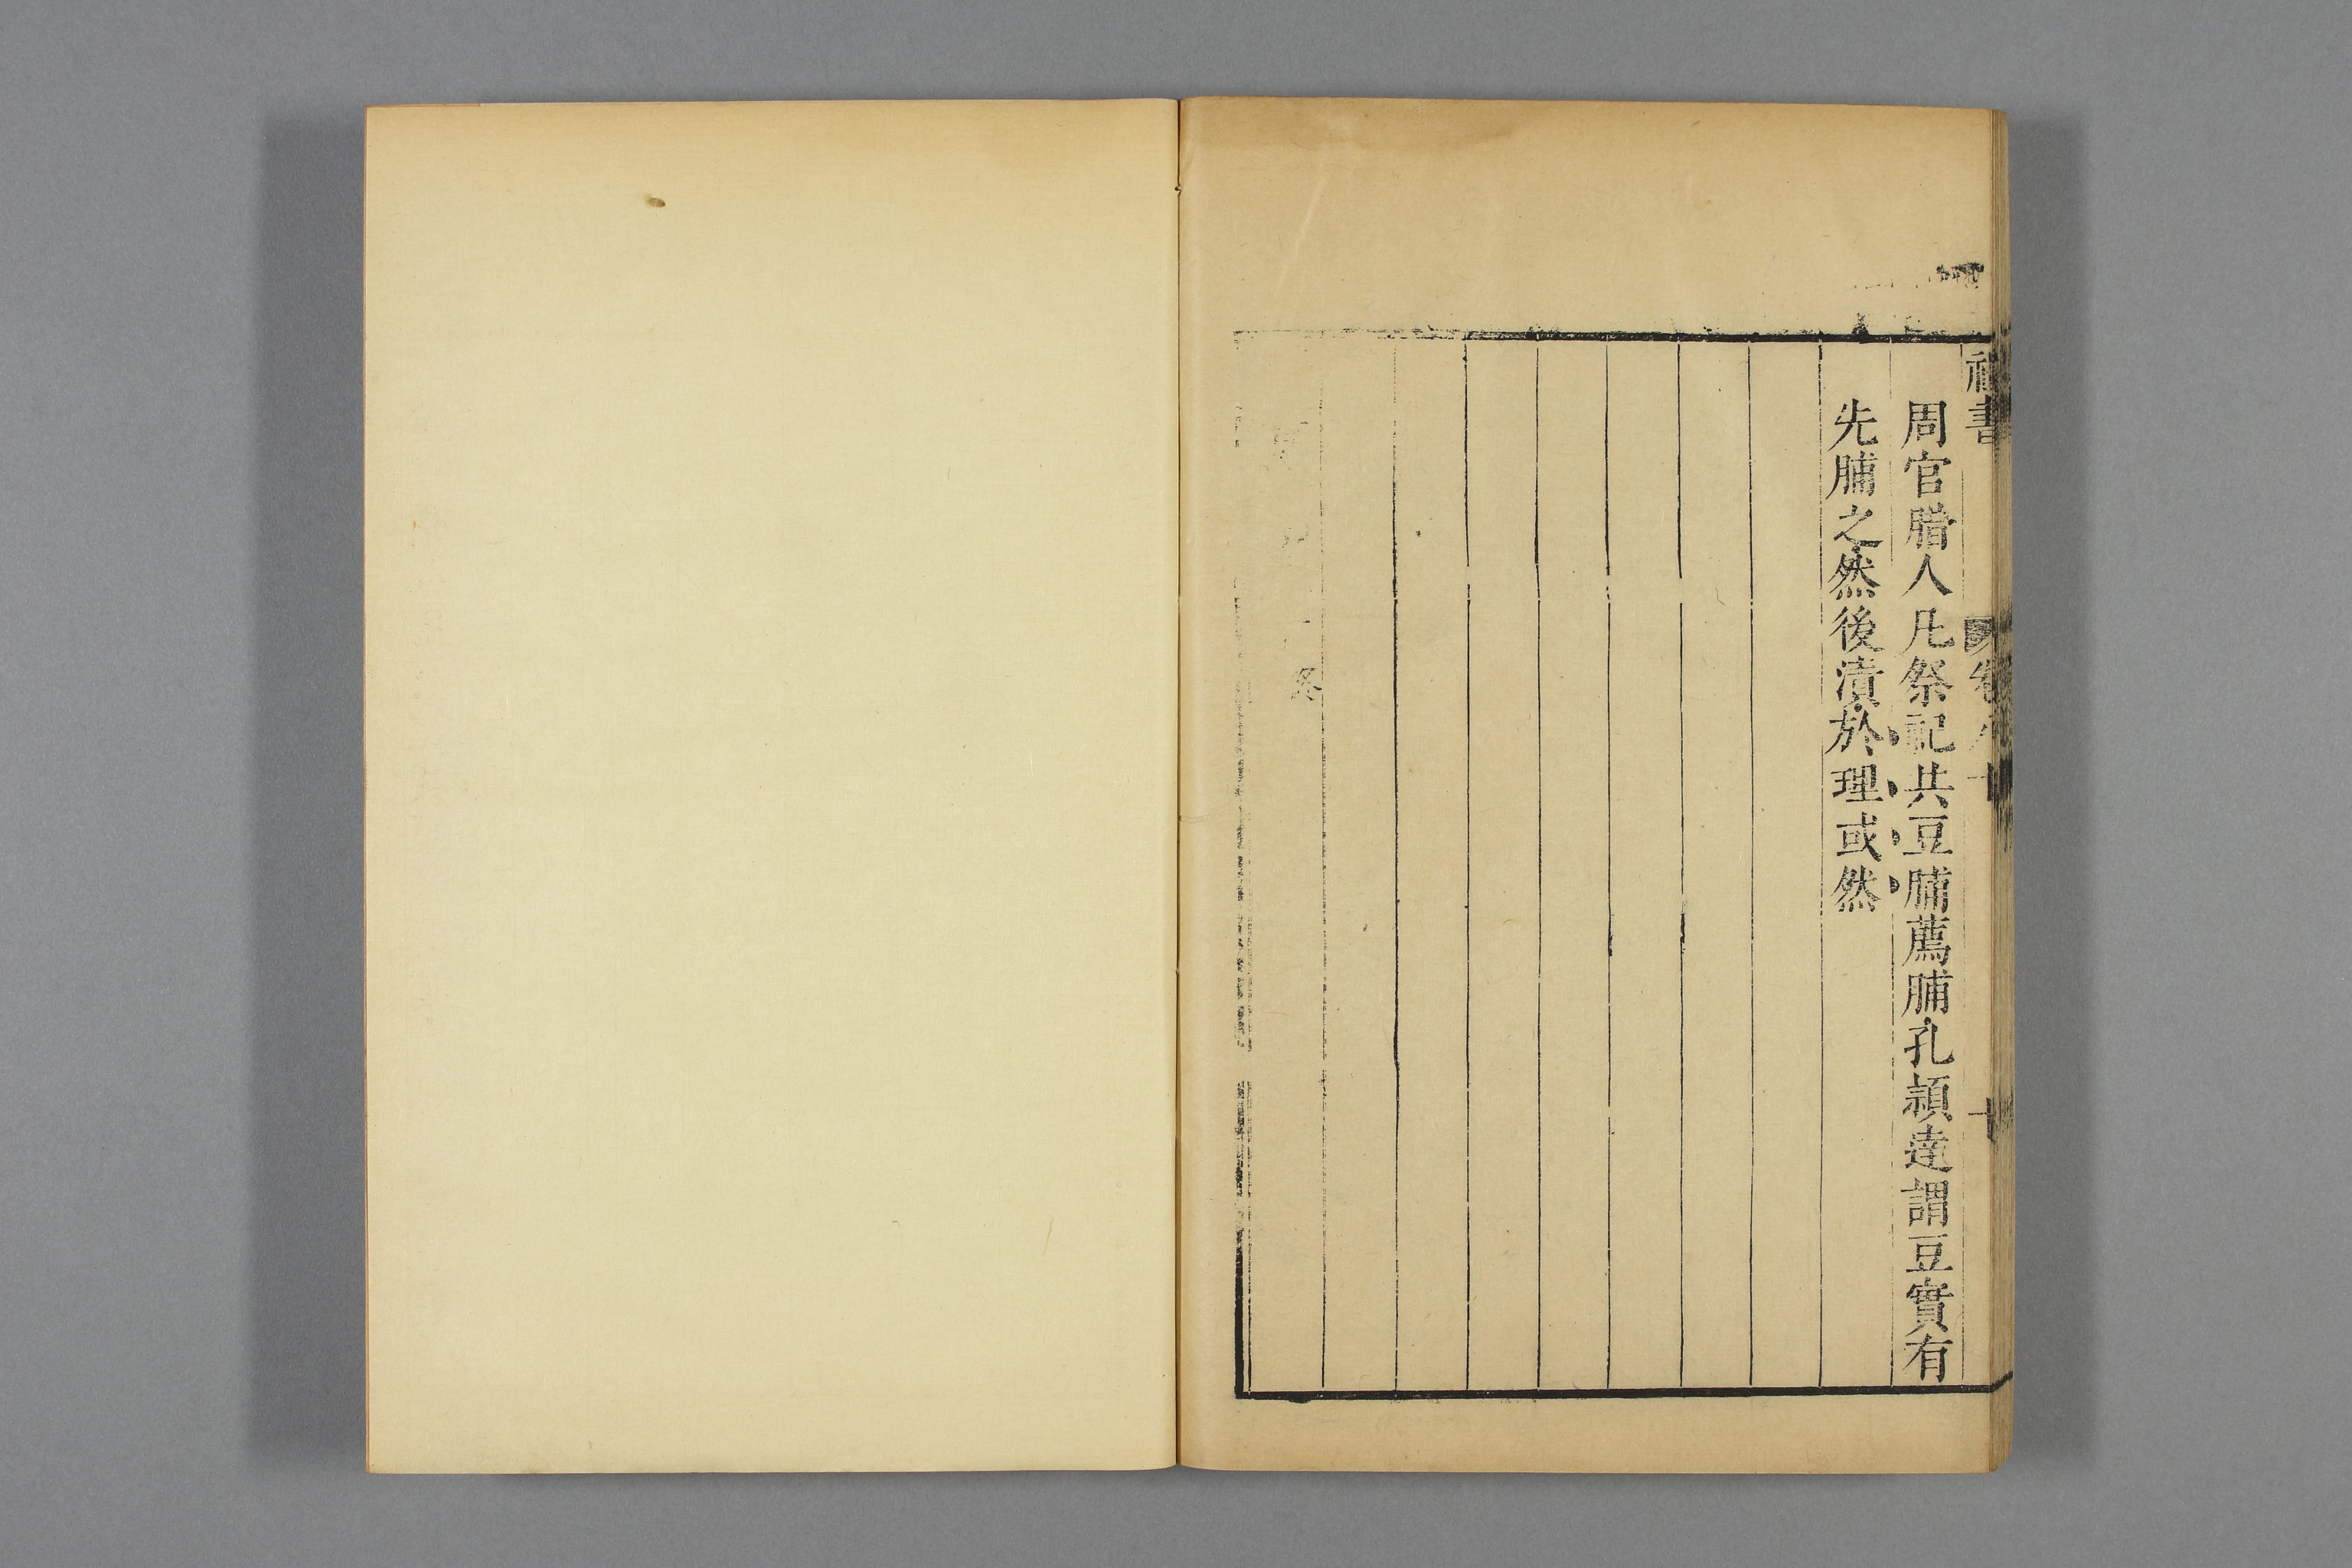 周官腊人凡祭祀共豆脯薦脯孔頴達謂豆實有
先脯之然後漬於理或然
終
書